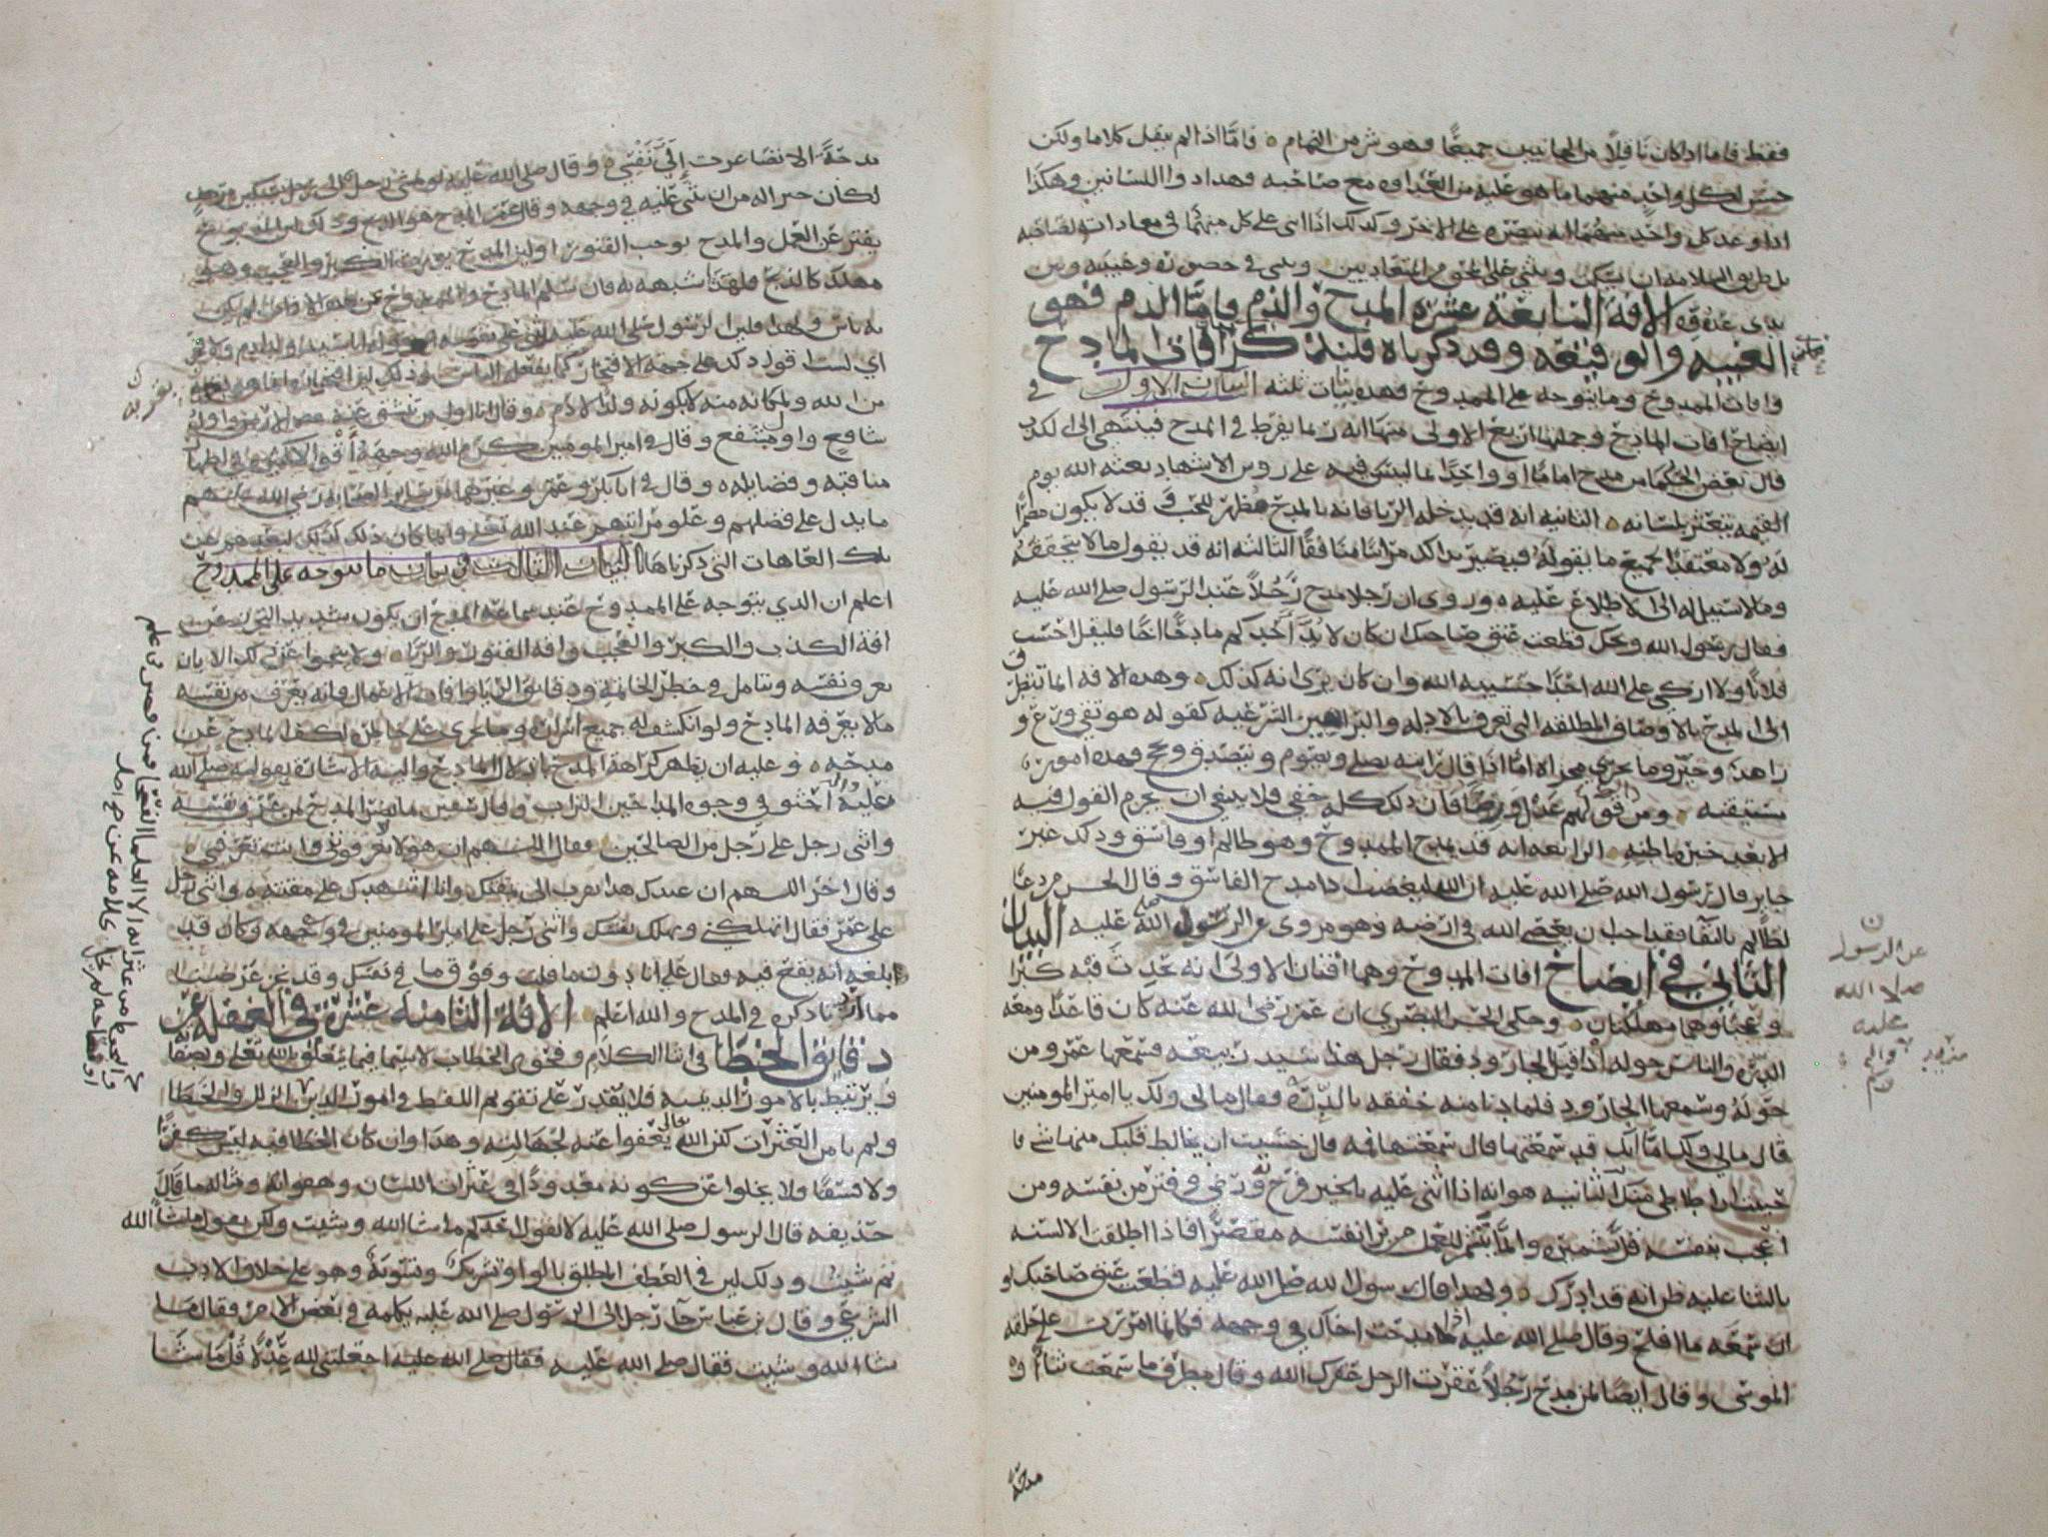 فقط فاما اذا كان ناقلا من الجانبين جميعا فهو شر من النمام ه فاما اذا لم ينقل كلاما ولكن
حسن لكل واحد منهما ما هو عليه من العداوه مع صاحبه فهذا ذوا اللسانين وهكذا
اذا وعد كل واحد منهما انه ينصره على الاخر وكذلك اذا اثنى على كل منهما في معاداته لصاحبه
بل طريق السلامه ان يسكت ويثني على المحق من المتعاديين ويثني في حضوره وغيبته وبين
يدي عدوه الافة السابعة عشره المدح والذم فاما الذم فهو
الغيبه والوقيعه وقد ذكرناه فلنذكر افات المادح
وافات الممدوح وما يتوجه على الممدوح فهذه بيانات ثلثه البيان الاول في
ايضاح افات المادح وجملتها اربع الاولى منها انه ربما يفرط في المدح فينتهي الى الكذب
قال بعض الحكما من مدح اماما او واحدا بما ليس فيه على روس الاشهاد بعثه الله يوم
القيمه يتعثر بلسانه ه الثانيه انه قد يدخله الريا فانه بالمدح مظهر للحب وقد لا يكون مضمرا
له ولا معتقدا لجميع ما يقوله فيصير بذلك مرائيا منافقا الثالثه انه قد يقول ما لا يتحققه
وما لا سبيل له الى الاطلاع عليه ه وروى ان رجلا مدح رجلا عند الرسول صلى الله عليه
فقال رسول الله ويحك قطعت عنق صاحبك ان كان لا بد احدكم مادحا اخا فليقل احسب
فلانا ولا ازكي على الله احدا حسيبه الله وان كان يرى انه كذلك ه وهذه الافه انما تتطرق
الى المدح بالاوصاف المطلقه التي تعرف بالادله والبراهين الشرعيه كقوله هو تقي وورع و
زاهد وخير وما يجري مجراه اما اذا قال رايته يصلي ويصوم ويتصدق ويحج فهذه امور
متيقنه ومن قولهم عدل ورضا فان ذلك كله خفي فلا ينبغي ان يجزم القول فيه
الا بعد خبره باطنه الرابعه انه قد يمدح الممدوح وهو ظالم او فاسق وذلك غير
جايز قال رسول الله صلى الله عليه ان الله ليغضب اذا مدح الفاسق وقال الحسن من دعا
لظالم بالبقا فقد احب ان يعصى الله في ارضه وهو مروي عن الرسول صلى الله عليه البيان
الثاني في ايضاح افات الممدوح وهما افتان الاولى انه يحدث فيه كبرا
وعجبا وهما مهلكتان ه وحكى الحسن البصري ان عمر رضي الله عنه كان قاعدا ومعه
الدره والناس حوله اذ اقبل الجارود فقال رجل هذا سيد ربيعه فسمعها عمر ومن
حوله وسمعها الجارود فلما دنا منه خفقه بالدره فقال مالي ولك يا امير المومنين
قال مالي ولك اما انك قد سمعتها قال سمعتها فمه قال خشيت ان يخالط قلبك منها شي فا
حببت ان اطاطي منك الثانيه هو انه اذا اثني عليه بالخير فرح به ورضي وفتر من نفسه ومن
اعجب بنفسه قل تشميره وانما يتشمر للعمل من يرى نفسه مقصرا فاذا اطلقت الالسنه
بالثنا عليه ظن انه قد ادرك ه ولهذا قال رسول الله صلى الله عليه قطعت عنق صاحبك لو
ان سمعه ما افلح وقال صلى الله عليه اذا مدحت اخاك في وجهه فكانما امررت على حلقه
الموسى وقال ايضا لمن مدح رجلا عقرت الرجل عقرك الله وقال مطرف ما سمعت ثناء او
مدحة
عن الرسول
صلى الله
عليه
واله
مدحة الا تصاغرت الي نفسي ه وقال صلى الله عليه لو مشى رجل الى رجل بسكين مرهف
لكان خيرا له من ان يثني عليه في وجهه وقال عمر المدح هو الذبح وذلك لان المذبوح
يفتر عن العمل والمدح يوجب الفتور او لان المدح يورث الكبر والعجب وهو
مهلك كالذبح فلهذا شبهه به فان سلم المادح والممدوح عن هذه الافات لم يكن
به باس ولهذا
اي لست اقول ذلك على جهة الافتخار كما يفعله الناس وذلك لان افتخاره انما هو لقربه
من الله ولمكانه منه لا بكونه ولد ادم ه وقال انا اول من تنشق عنه الارض وانا اول
شافع واول مشفع وقال في امير المومنين كرم الله وجهه اقوالا كثيره في اظهار
مناقبه وفضايله ه وقال في ابا بكر وعمر وغيرهما من ساير الصحابه رضي الله عنهم
ما يدل على فضلهم وعلو مراتبهم عند الله تعالى وانما كان ذلك كذلك لبعدهم عن
تلك العاهات التي ذكرناها البيان الثالث في بيان ما يتوجه على الممدوح
اعلم ان الذي يتوجه على الممدوح عند سماعه المدح ان يكون شديد التحرز عن
افة الكذب والكبر والعجب وافة الفتور والريا ه ولا ينجوا عن ذلك الا بان
يعرف نفسه ويتامل في خطر الخاتمه ودقايق الريا وافات الاعمال فانه يعرف من نفسه
مالا يعرفه المادح ولو انكشف له جميع اسراره وما يجري على خاطره لكف المادح عن
مدحه ه وعليه ان يظهر كراهة المدح باذلال المادح واليه الاشاره بقوله صلى الله
عليه واله احثوا في وجوه المداحين التراب وقال سفين ما يضر المدح لمن عرف نفسه
واثنى رجل على رجل من الصالحين فقال اللهم ان هولاء لا يعرفوني وانت تعرفني ه
وقال اخر اللهم ان عبدك هذا تقرب الي بمقتك وانا اشهدك على مقته ه واثنى رجل
على عمر فقال اتهلكني وتهلك نفسك واثنى رجل على امير المومنين في وجهه وكان قد
ابلغه انه يقع فيه فقال علي انا دون ما قلت وفوق ما في نفسك وقد نجز غرضنا
مما اردنا ذكره في المدح والله اعلم الافة الثامنه عشرة في الغفله عن
دقايق الخطا في اثنا الكلام وفحوى الخطاب لا سيما فيما يتعلق بالله تعالى وبصفاته
ويرتبط بالامور الدينيه فلا يقدر على تقويم اللفظ في امور الدين
ولم يامن العثرات لكن الله تعالى يعفوا عنه لجهالته وهذا وان كان الخطا فيه ليس كفرا
ولا فسقا ولا يخلوا عن كونه معدودا في عثرات اللسان وهفواته ومثاله ما قال
حذيفه قال الرسول صلى الله عليه لا يقول احدكم ما شا الله وشيت ولكن يقول ما شا الله
ثم شيت وذلك لان في العطف المطلق بالواو تشريك وتسويه وهو على خلاف الادب
الشرعي وقال بن عباس جا رجل الى الرسول صلى الله عليه يكلمه في بعض الامر فقال ما
شا الله وشيت فقال صلى الله عليه فقال صلى الله عليه اجعلتني لله عدلا قل ما شا